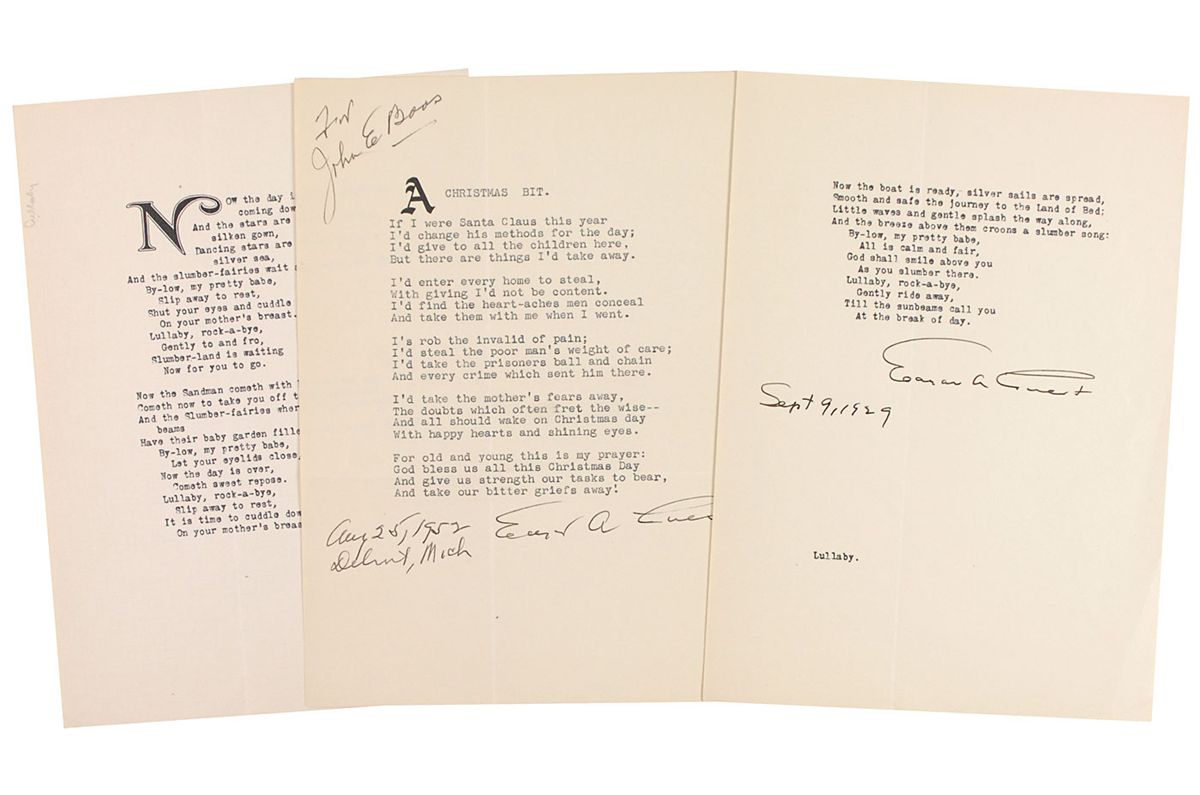 Lullaby
Now the day i
coming dow
And the stars are
silken gown,
Dancing stars are
silver sea,
And the slumber-fairies wait
By-low, my pretty babe,
Slip away to rest,
Shut your eyes and cuddle
On your mother's breast.
Lullaby, rock-a-bye,
Gently to and fro,
Slumber-land is waiting
Now for you to go.
Now the Sandman cometh with
Cometh now to take you off t
And the Slumber-fairies wher
beams
Have their baby garden fille
By-low, my pretty babe,
Let your eyelids close,
Now the day is over,
Cometh sweet repose.
Lullaby, rock-a-bye,
Slip away to rest,
It is time to cuddle dow
On your mother's breas
For
John E Boos
A CHRISTMAS BIT.
If I were Santa Claus this year
I'd change his methods for the day;
I'd give to all the children here,
But there are things I'd take away.
I'd enter every home to steal,
With giving I'd not be content.
I'd find the heart-aches men conceal
And take them with me when I went.
I's rob the invalid of pain;
I'd steal the poor man's weight of care;
I'd take the prisoners ball and chain
And every crime which sent him there.
I'd take the mother's fears away,
The doubts which often fret the wise--
And all should wake on Christmas day
With happy hearts and shining eyes.
For old and young this is my prayer:
God bless us all this Christmas Day
And give us strength our tasks to bear,
And take our bitter griefs away!
Aug 25, 1952 Edgar A Gues
Detroit, Mich
Now the boat is ready, silver sails are spread,
Smooth and safe the journey to the Land of Bed;
Little waves and gentle splash the way along,
And the breeze above them croons a slumber song:
By-low, my pretty babe,
All is calm and fair,
God shall smile above you
As you slumber there.
Lullaby, rock-a-bye,
Gently ride away,
Till the sunbeams call you
At the break of day.
Edgar A Guest
Sept 9, 1929
Lullaby.